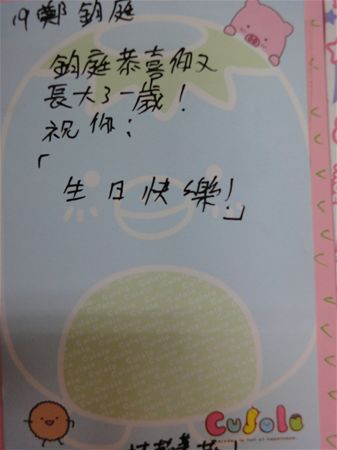 19鄭鈞庭
鈞庭恭喜你又
長大了一歲！
祝你：
「
生日快樂！」
Cusolo